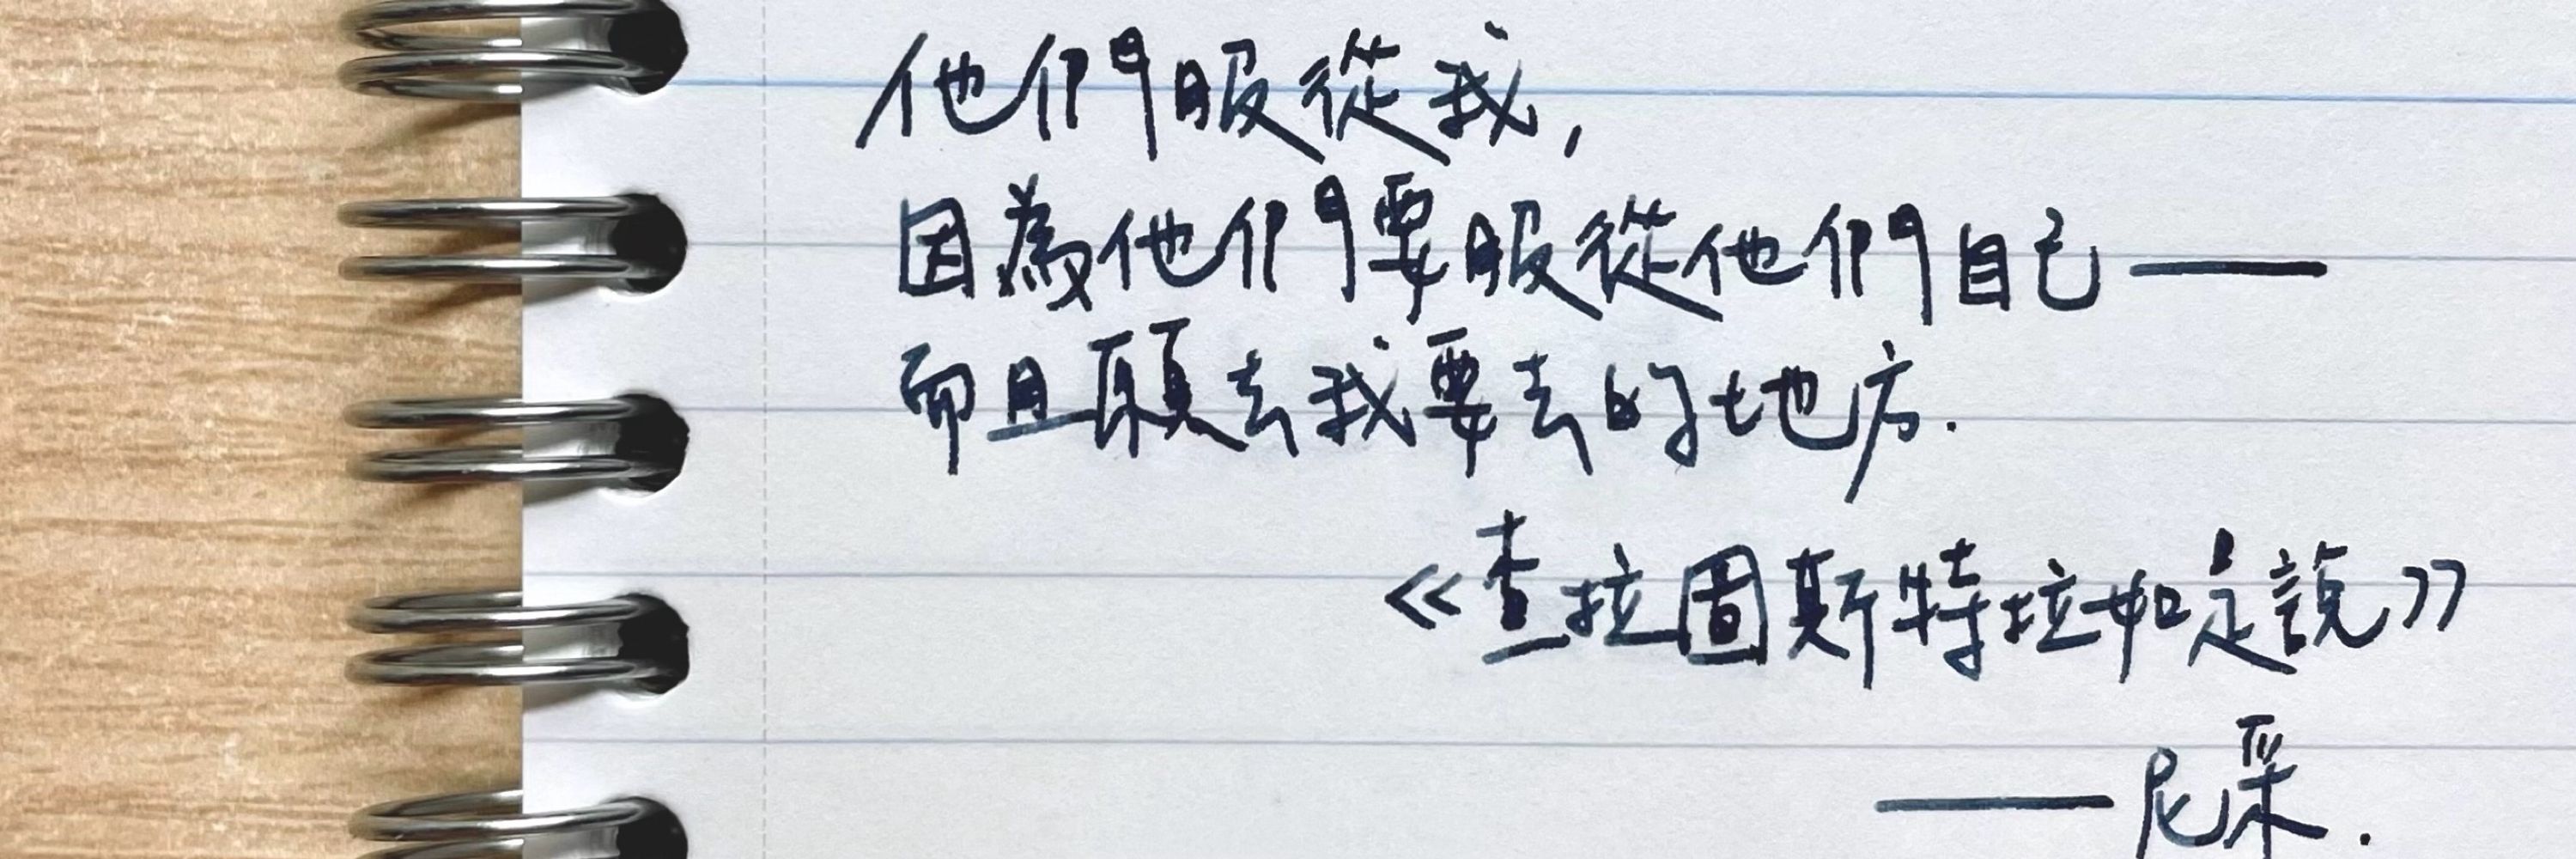 他們服從我,
因為他們要服從他們自己——
而且願去我要去的地方.
《查拉圖斯特拉如是說》
——尼采.